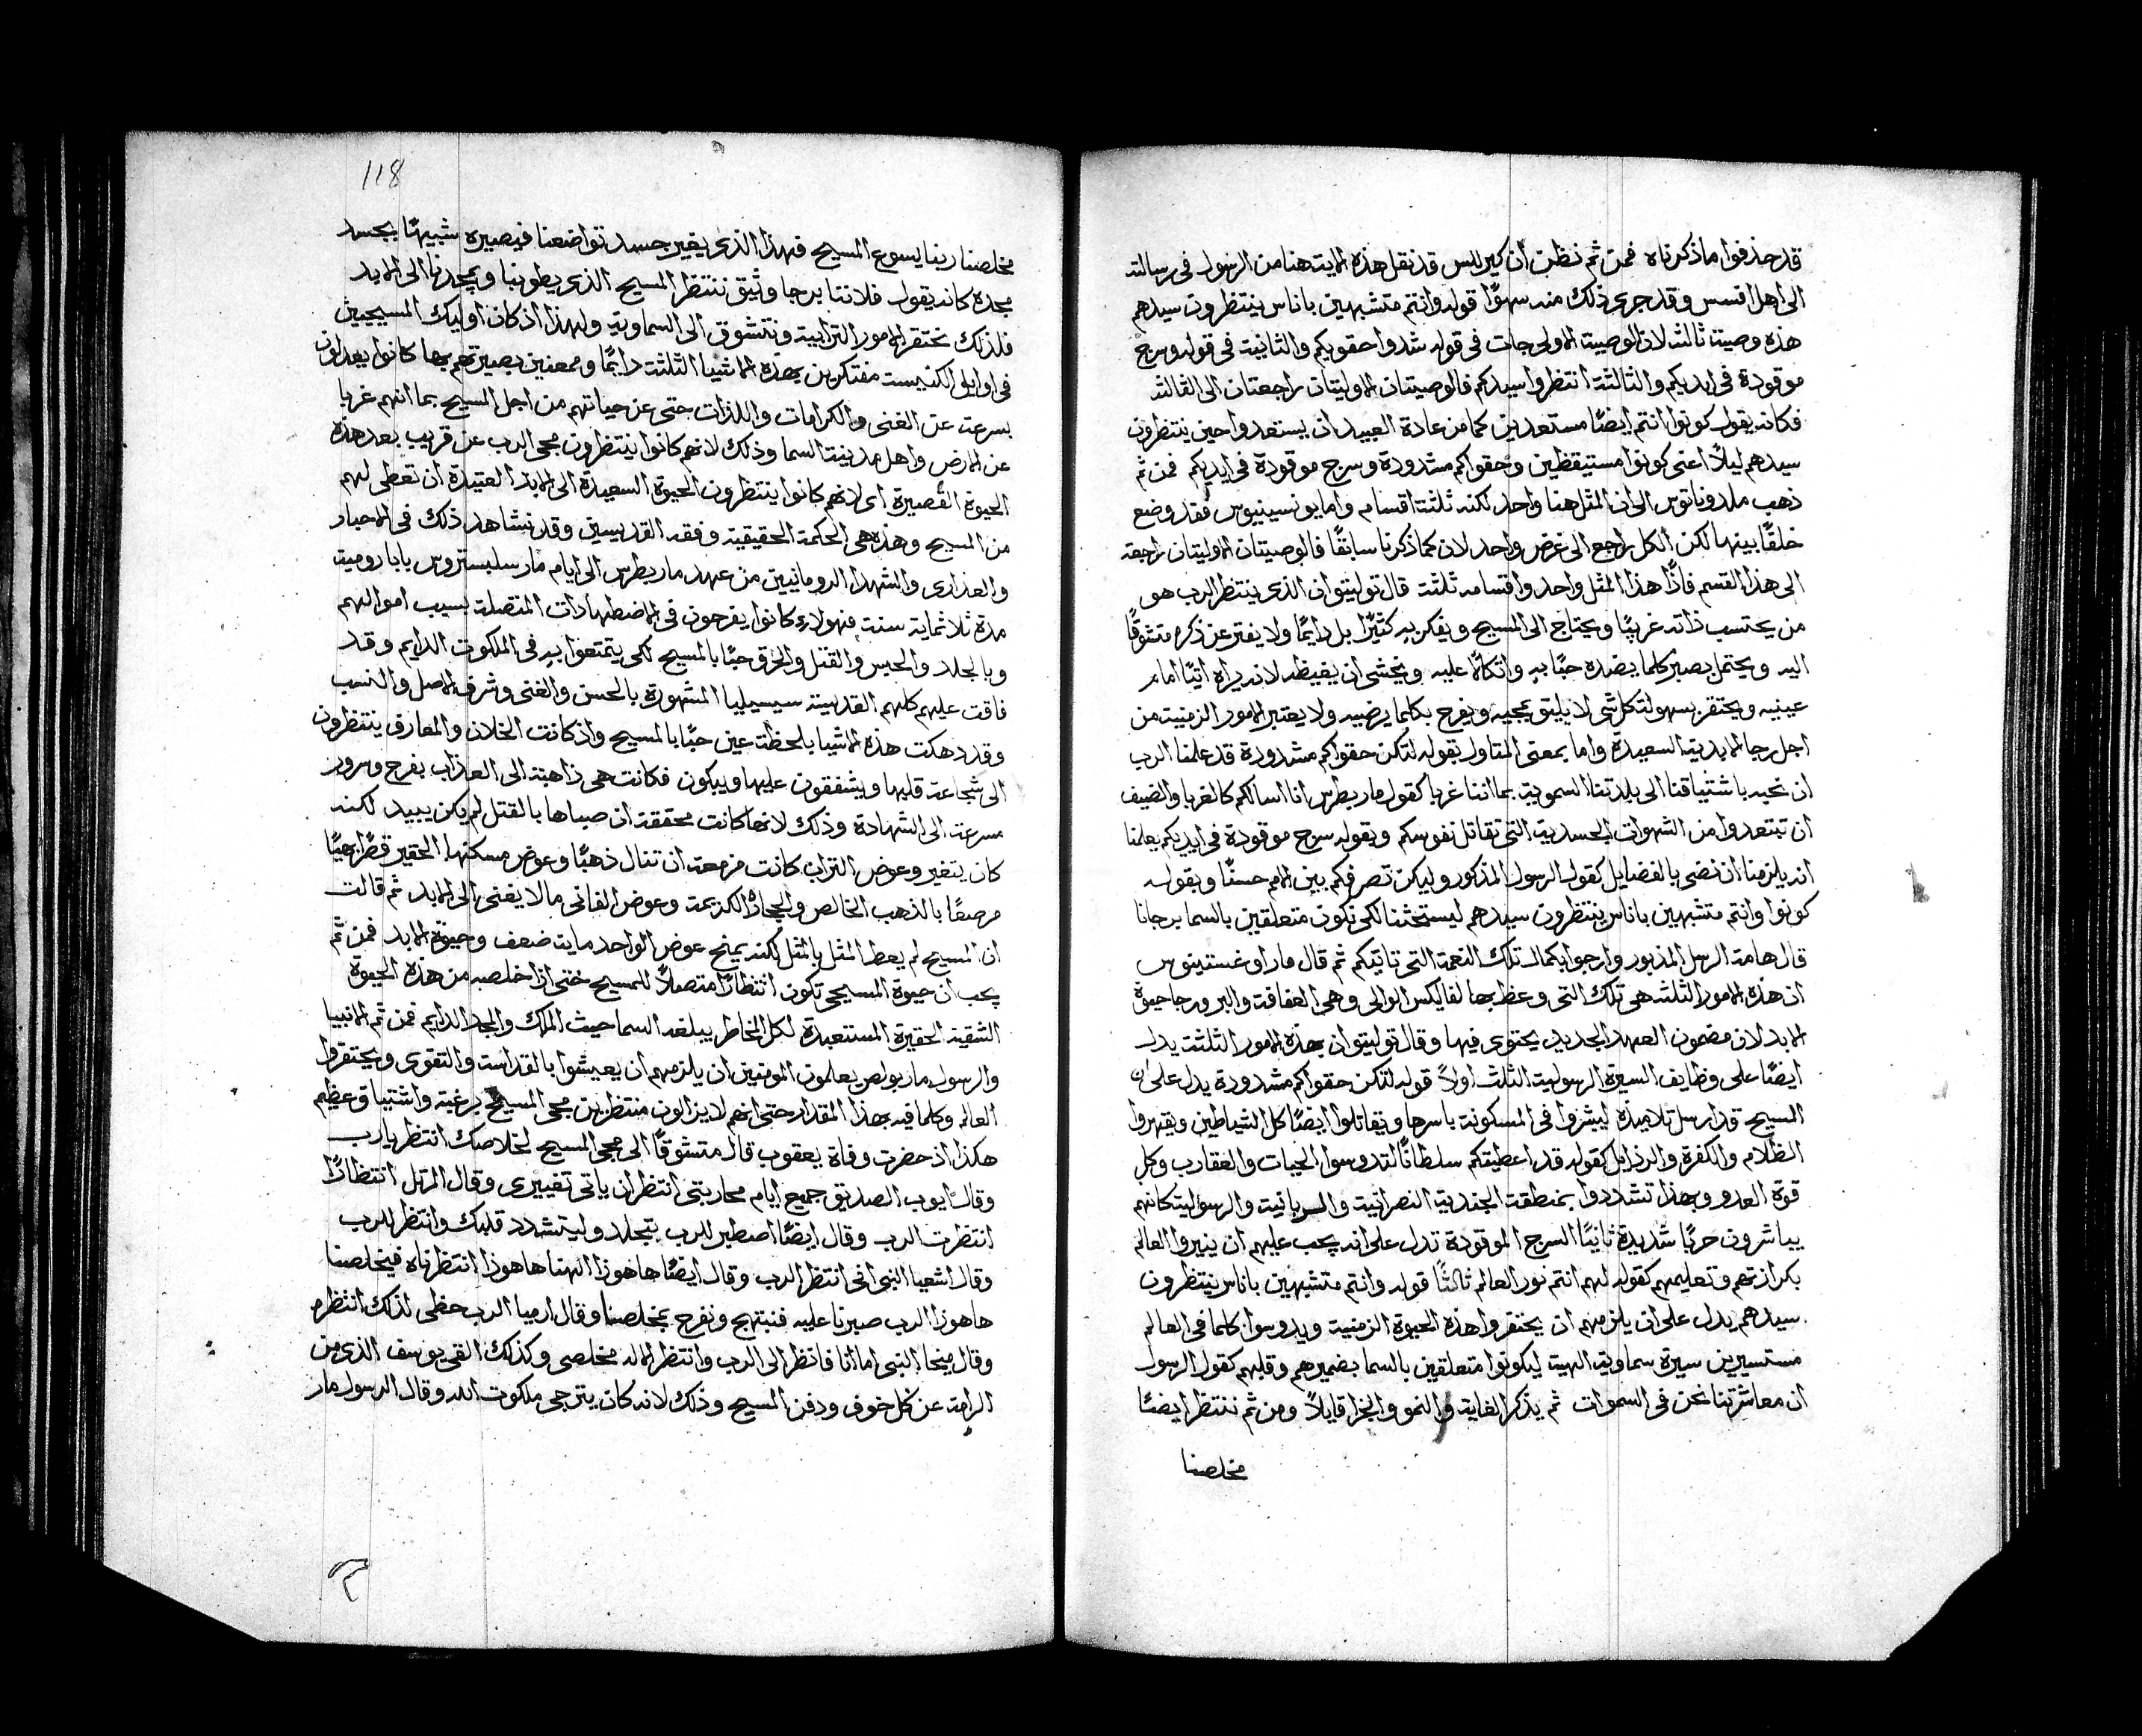 قد حذفوا ما ذكرناه فمن ثم نظن أن كيرللس قد نقل هذه الاية هنا من الرسول فى رسالته
الى اهل افسس وقد جرى ذلك منه سهوًا قوله وانتم متشبهين باناس ينتظرون سيدهم
هذه وصية ثالثة لان الوصية الاولى جات فى قوله شدوا حقويكم والثانية فى قوله وسرج
موقودة فى ايديكم والثالثة انتظروا سيدكم فالوصيتان الاوليتان راجعتان الى الثالثة
فكانه يقول كونوا انتم ايضًا مستعدين كما من عادة العبيد ان يستعدوا حين ينتظرون
سيدهم ليلاً اعنى كونوا مستيقظين وحقواكم مشدودة وسرج موقودة فى ايديكم فمن ثم
ذهب ملدوناتوس الى ان المثل هنا واحد لكنه ثلثة اقسام واما يونسينيوس فقد وضع
خلفًا بينها لكن الكل راجع الى غرض واحد لان كما ذكرنا سابقًا فالوصيتان الاوليتان راجعة
الى هذا القسم فاذًا هذا المثل واحد واقسامه ثلثة قال توليتوان الذى ينتظر الرب هو
من يحتسب ذاته غريبًا ويحتاج الى المسيح ويفكر به كثيرًا بل دايمًا ولا يفتر عن ذكره متشوقًا
اليه ويحتمل بصبر كلما يضده حبًا به واتكالاً عليه ويخشى ان يغيظه لانه يراه اتيًا امام
عينيه ويحتقر بسهولة كل شى لا يليق بمجيه ويفرح بكلما يرضيه ولا يعتبر الامور الزمنية من
اجل رجا الابدية السعيدة واما بمعنى المتاول بقوله لتكن حقواكم مشدودة قد علمنا الرب
ان نحيد باشتياقنا الى بلدتنا السموية بما اننا غربا كقول مار بطرس انا اسالكم كالغربا والضيف
ان تبتعدوا من الشهوات الجسدية التى تقاتل نفوسكم وبقوله سرج موقودة فى ايديكم يعلمنا
انه يلزمنا ان نضى بالفضايل كقول الرسول المذكور وليكن تصرفكم بين الامم حسنًا وبقوله
كونوا وانتم متشبهين باناس ينتظرون سيدهم ليستحثنا لكى نكون متعلقين بالسما برجانا
قال هامة الرسل المذبور وارجوا بكمال تلك النعمة التى تاتيكم ثم قال مار اوغستينوس
ان هذه الامور الثلثه هى تلك التى وعظ بها لفاليكس الوالى وهى العفافة والبر ورجا حيوة
الابد لان مضمون العهد الجديد يحتوى فيها وقال توليتوان بهذه الامور الثلثة يدل
ايضًا على وظايف السيرة الرسولية الثلث اولاً قوله لتكن حقواكم مشدودة يدل على ان
المسيح قد ارسل تلاميذه ليبشروا فى المسكونة باسرها ويقاتلوا ايضًا كل الشياطين ويقهروا
الظلام والكفرة والرذايل كقوله قد اعطيتكم سلطانًا لتدوسوا الحيات والعقارب وكل
قوة العدو وبهذا تشددوا بمنطقة الجندية النصرانية والسريانية والرسولية كانهم
يباشرون حربًا شديدة ثانيًا السرج الموقودة تدل على انه يجب عليهم ان ينيروا العالم
بكرازتهم وتعليمهم كقوله لهم انتم نور العالم ثالثًا قوله وانتم متشبهين باناس ينتظرون
سيدهم يدل على ان يلزمهم ان يحتقروا هذه الحيوة الزمنية ويدوسوا كلما فى العالم
مستسيرين سيرة سماوية الهية ليكونوا متعلقين بالسما بضميرهم وقلبهم كقول الرسول
ان معاشرتنا نحن فى السموات ثم يذكر الغاية والنمو والجزا قايلاً ومن ثم ننتظر ايضًا
مخلصنا
118
مخلصنا ربنا يسوع المسيح فهذا الذى يغير جسد تواضعنا فيصيره شبيهًا بجسد
مجده كانه يقول فلاننا برجا وثيق ننتظر المسيح الذى يطوبنا ويمجدنا الى الابد
فلذلك نحتقر الامور الترابية ونتشوق الى السماوية ولهذا اذ كان اوليك المسيحيين
فى اوايل الكنيسة مفتكرين بهذه الاشيا الثلثة دايمًا وممعنين بصيرتهم بها كانوا يعدلون
بسرعة عن الغنى والكرامات واللذات حتى عن حياتهم من اجل المسيح بما انهم غربا
عن الارض واهل مدينة السما وذلك لانهم كانوا ينتظرون مجى الرب عن قريب بعد هذه
الحيوة القصيرة اى لانهم كانوا ينتظرون الحيوة السعيدة الى الابد العتيدة ان تعطى لهم
من المسيح وهذه هى الحكمة الحقيقية وفقه القديسين وقد نشاهد ذلك فى الاحبار
والعذارى والشهدا الرومانيين من عهد مار بطرس الى ايام مار سلبستروس بابا رومية
مدة ثلاثماية سنة فهولاء كانوا يفرحون فى الاضطهادات المتصلة بسبب اموالهم
وبالجلد والحبس والقتل والحرق حبًا بالمسيح لكى يتمتعوا به فى الملكوت الدايم وقد
فاقت عليهم كلهم القديسة سيسيليا المشهورة بالحسن والغنى وشرف الاصل والنسب
وقد دهكت هذه الاشيا بلحظة عين حبًا بالمسيح واذ كانت الخلان والمعارف ينتظرون
الى شجاعة قلبها ويشفقون عليها ويبكون فكانت هى ذاهبة الى العذاب بفرح وسرور
مسرعة الى الشهادة وذلك لانها كانت محققة ان صباها بالقتل لم يكن يبيد لكنه
كان يتغير وعوض التراب كانت مزمعة ان تنال ذهبًا وعوض مسكنها الحقير قصرًا بهيًا
مرصعًا بالذهب الخالص والحجارة الكريمة وعوض الفانى ما لا يفنى الى الابد ثم قالت
ان المسيح لم يعط المثل بالمثل لكنه يمنح عوض الواحد ماية ضعف وحيوة الابد فمن ثم
يجب ان حيوة المسيحى تكون انتظارًا متصلاً للمسيح حتى اذا خلصه من هذه الحيوة
الشقية الحقيرة المستعبدة لكل المخاطر يبلغه السما حيث الملك والمجد الدايم فمن ثم الانبيا
والرسول مار بولص يعلمون المومنين ان يلزمهم ان يعيشوا بالقداسة والتقوى ويحتقروا
العالم وكلما فيه بهذا المقدار حتى انهم لا يزالون منتظرين مجى المسيح برغبة واشتياق عظيم
هكذا اذ حضرت وفاة يعقوب قال متشوقًا الى مجى المسيح لخلاصك انتظر يا رب
وقال ايوب الصديق جميع ايام محاربتى انتظر ان ياتى تغييرى وقال المرتل انتظارًا
انتظرت الرب وقال ايضًا اصطبر للرب بتجلد وليتشدد قلبك وانتظر للرب
وقال اشعيا النبى انى انتظر الرب وقال ايضًا ها هوذا الهنا ها هوذا انتظرناه فيخلصنا
ها هوذا الرب صبرنا عليه فنبتهج ونفرح بمخلصنا وقال ارميا الرب حظى لذلك انتظره
وقال ميخا النبى اما انا فانظر الى الرب وانتظر الاله مخلصى وكذلك القى يوسف الذى من
الرامة عن كل خوف ودفن المسيح وذلك لانه كان يترجى ملكوت الله وقال الرسول مار